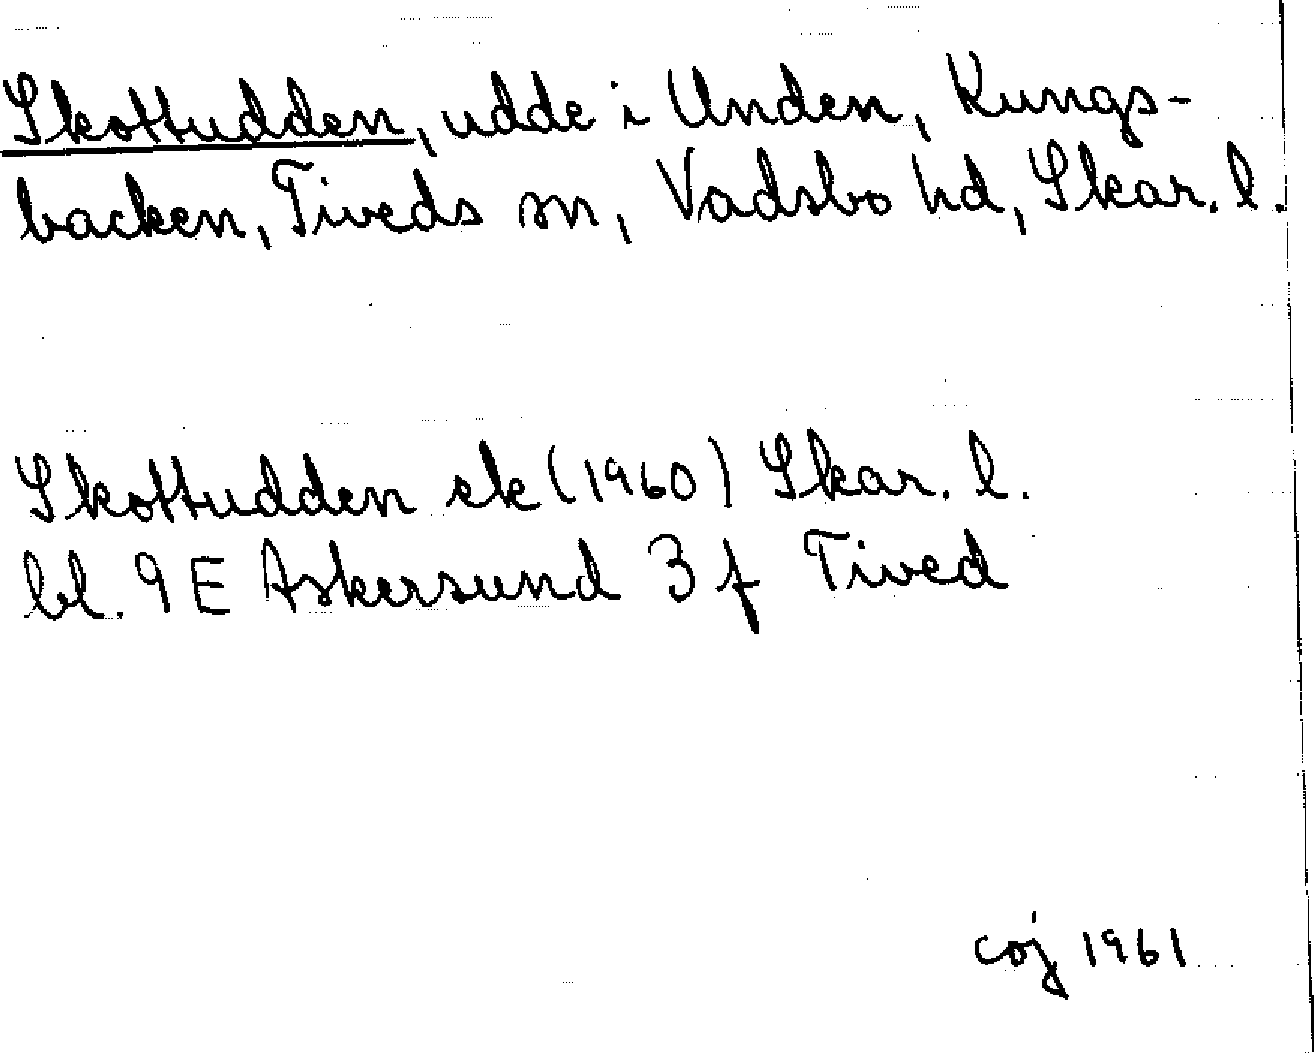 Skottudden, udde i Unden, Kungs-
backen, Tiveds sn, Vadsbo hd, Skar. l.
Skottudden ek (1960) Skar. l.
bl. 9 E Askersund 3 f Tived
coj 1961